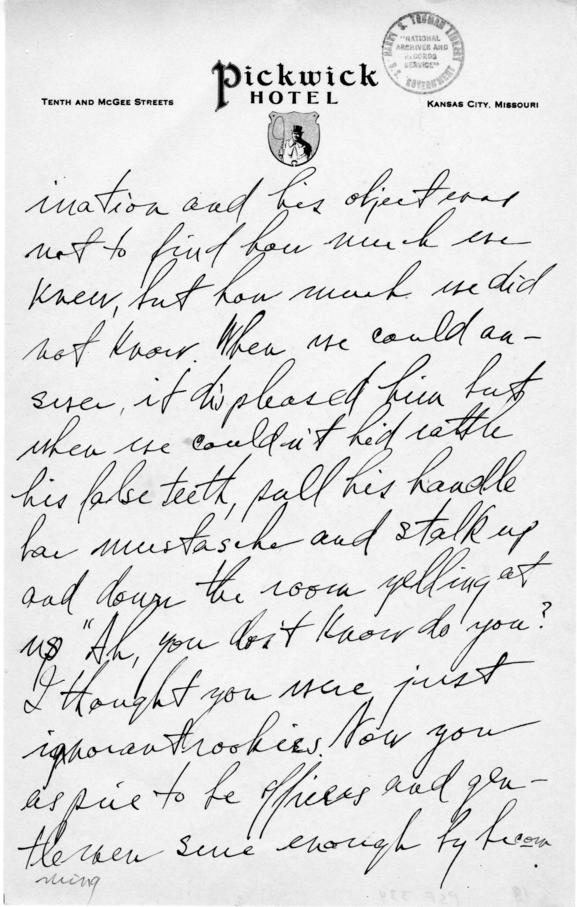 HARRY S. TRUMAN LIBRARY
"NATIONAL
ARCHIVES AND
RECORDS
SERVICE"
U.S. GOVERNMENT
Pickwick
HOTEL
TENTH AND MCGEE STREETS
KANSAS CITY, MISSOURI
ination and his object was
not to find how much we
knew, but how much we did
not know. When we could an-
swer, it displeased him but
when we couldn't he'd rattle
his false teeth, pull his handle
bar mustache and stalk up
and down the room yelling at
us "Ah, you don't know do you?
I thought you were just
ignorant rookies. Now you
aspire to be officers and gen-
tlemen sure enough by becom
ming
PSF 334